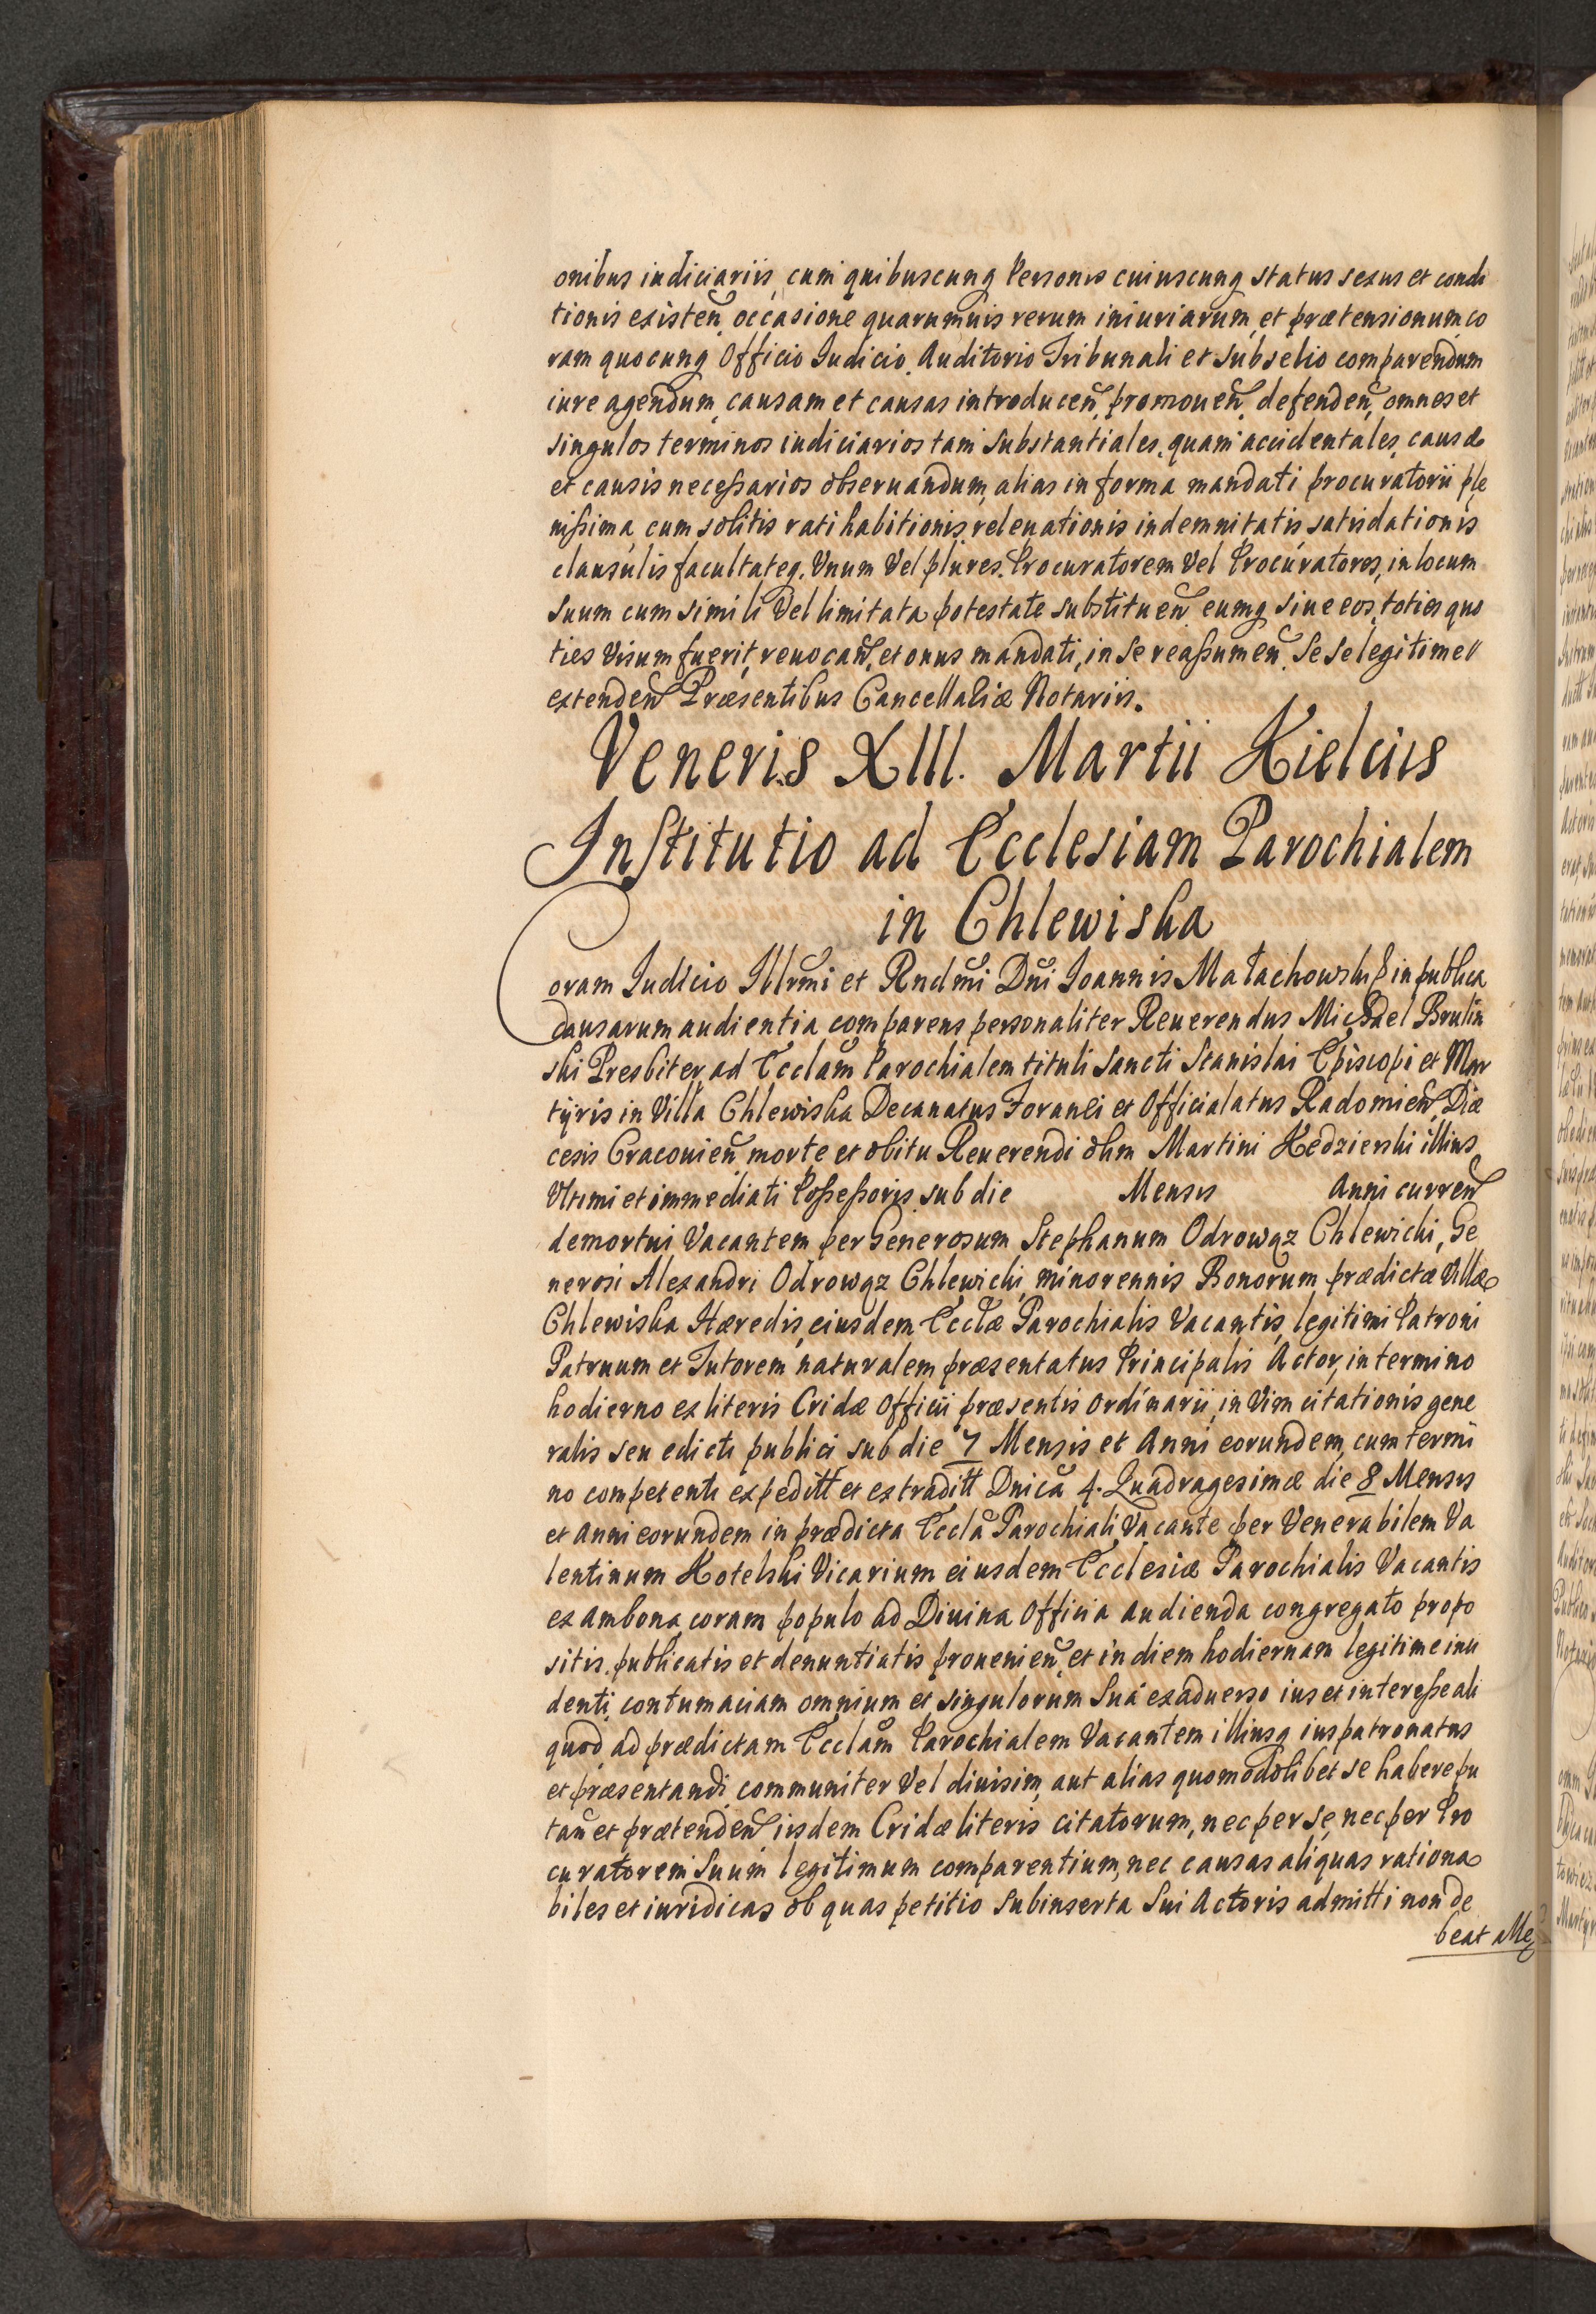 onibus iudiciariis, cum quibuscunq Personis cuiuscunq status sexus et condi
tionis existen̄, occasione quarumuis rerum iniuriarum, et prætensionum co
ram quocunq Officio Iudicio, Auditorio Tribunali et Subselio comparendum
iure agendum, causam et causas introducen̄, promouen̄, defenden̄, omnes et
singulos terminos iudiciarios tam substantiales, quam accidentales, causæ
et causis neceßarios obseruandum, alias in forma mandati procuratorii ple
nißima, cum solitis ratihabitionis, releuationis indemnitatis satisdationis
clausulis facultateq. Vnum Vel plures. Procuratorem Vel Procuratores, in locum
Suum cum simili Vel limitata potestate substituen̄, eumq siue eos, toties quo
ties Visum fuerit, reuocan̄, et onus mandati, in Se reaßumen̄. Se se legitime
extenden̄ Præsentibus Cancellaliæ Notariis.
Veneris XIII. Martii Kielciis
Institutio ad Ecclesiam Parochialem
in Chlewiska
Coram Iudicio Illrm̄i et Rndm̄i Dn̄i Ioannis Małachowski in publica
Causarum audientia comparens personaliter Reuerendus Michael Brulin
ski Presbiter, ad Eccla͠m Parochialem tituli Sancti Stanislai Episcopi et Mar
tÿris in Villa Chlewiska Decanatus Foranei et Officialatus Radomien̄, Diæ
cesis Cracouien̄, morte et obitu Reuerendi ohm Martini Kedzierski illius
Vltimi et immediati Poßeßoris, sub die Mensis Anni curren̄
demortui, Vacantem per Generosum Stephanum Odrowąz Chlewicki, Ge
nerosi Alexandri Odrowąz Chlewicki, minorennis Bonorum prædictæ Villæ
Chlewiska Hæredis, eiusdem Ecclæ̃ Parochialis Vacantis, legitimi Patroni
Patruum et Tutorem naturalem præsentatus Principalis Actor, in termino
hodierno ex literis Cridæ Officii præsentis ordinarii, in Vim citationis gene
ralis seu edicti publici sub die 7 Mensis et Anni eorundem, cum termi
no competenti expeditt et extraditt Dnica̅ 4. Quadragesimæ die 8 Mensis
et Anni eorundem in prædicta Eccla̅ Parochiali Vacante per Venerabilem Va
lentinum Kotelski Vicarium eiusdem Ecclesiæ Parochialis Vacantis
ex Ambona, coram populo ad Diuina Officia audienda congregato propo
sitis, publicatis et denuntiatis prouenien̄, et in diem hodiernam legitime inci
denti, contumaciam omnium et singulorum Sua ex aduerso ius et intereße ali
quod ad prædictam Eccla͠m Parochialem Vacantem illiusq ius patronatus
et præsentandi, communiter Vel diuisim, aut alias quomodolibet se habere pu
tan̄ et prætenden̄ iisdem Cridæ literis citatorum, nec per se, nec per Pro
curatorem Suum legitimum comparentium, nec causas aliquas rationa
biles et iuridicas ob quas petitio subinserta Sui Actoris admitti non de
beat